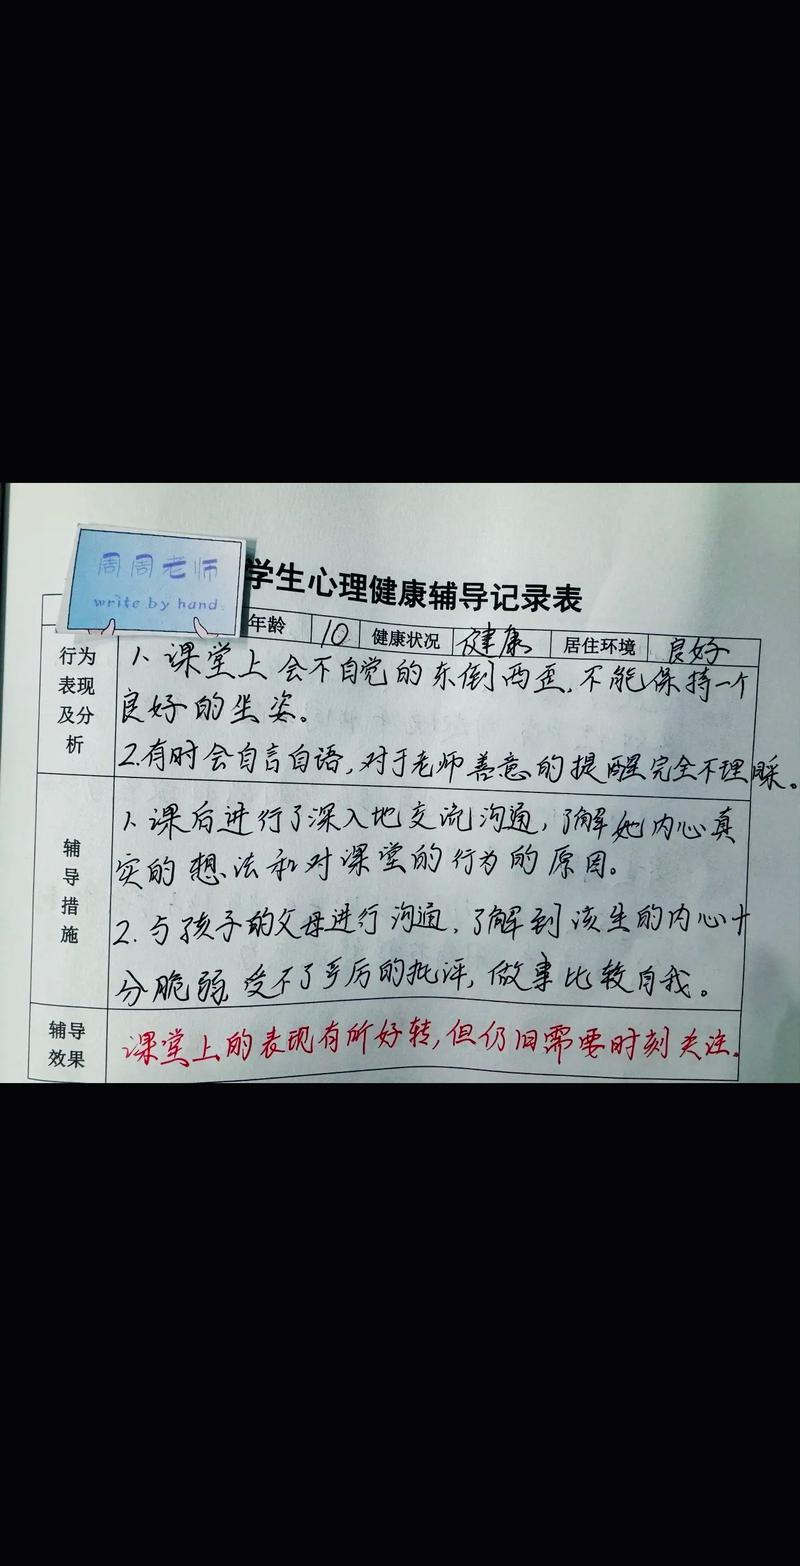 周周老师
write by hand.
学生心理健康辅导记录表
年龄 10 健康状况 健康 居住环境 良好
行为
表现
及分
析
1、课堂上会不自觉的东倒西歪,不能保持一个
良好的坐姿。
2.有时会自言自语,对于老师善意的提醒完全不理睬。
辅
导
措
施
1、课后进行了深入地交流沟通,了解她内心真
实的想法和对课堂的行为的原因。
2.与孩子的父母进行沟通,了解到该生的内心十
分脆弱,受不了严厉的批评,做事比较自我。
辅导
效果
课堂上的表现有所好转,但仍旧需要时刻关注。